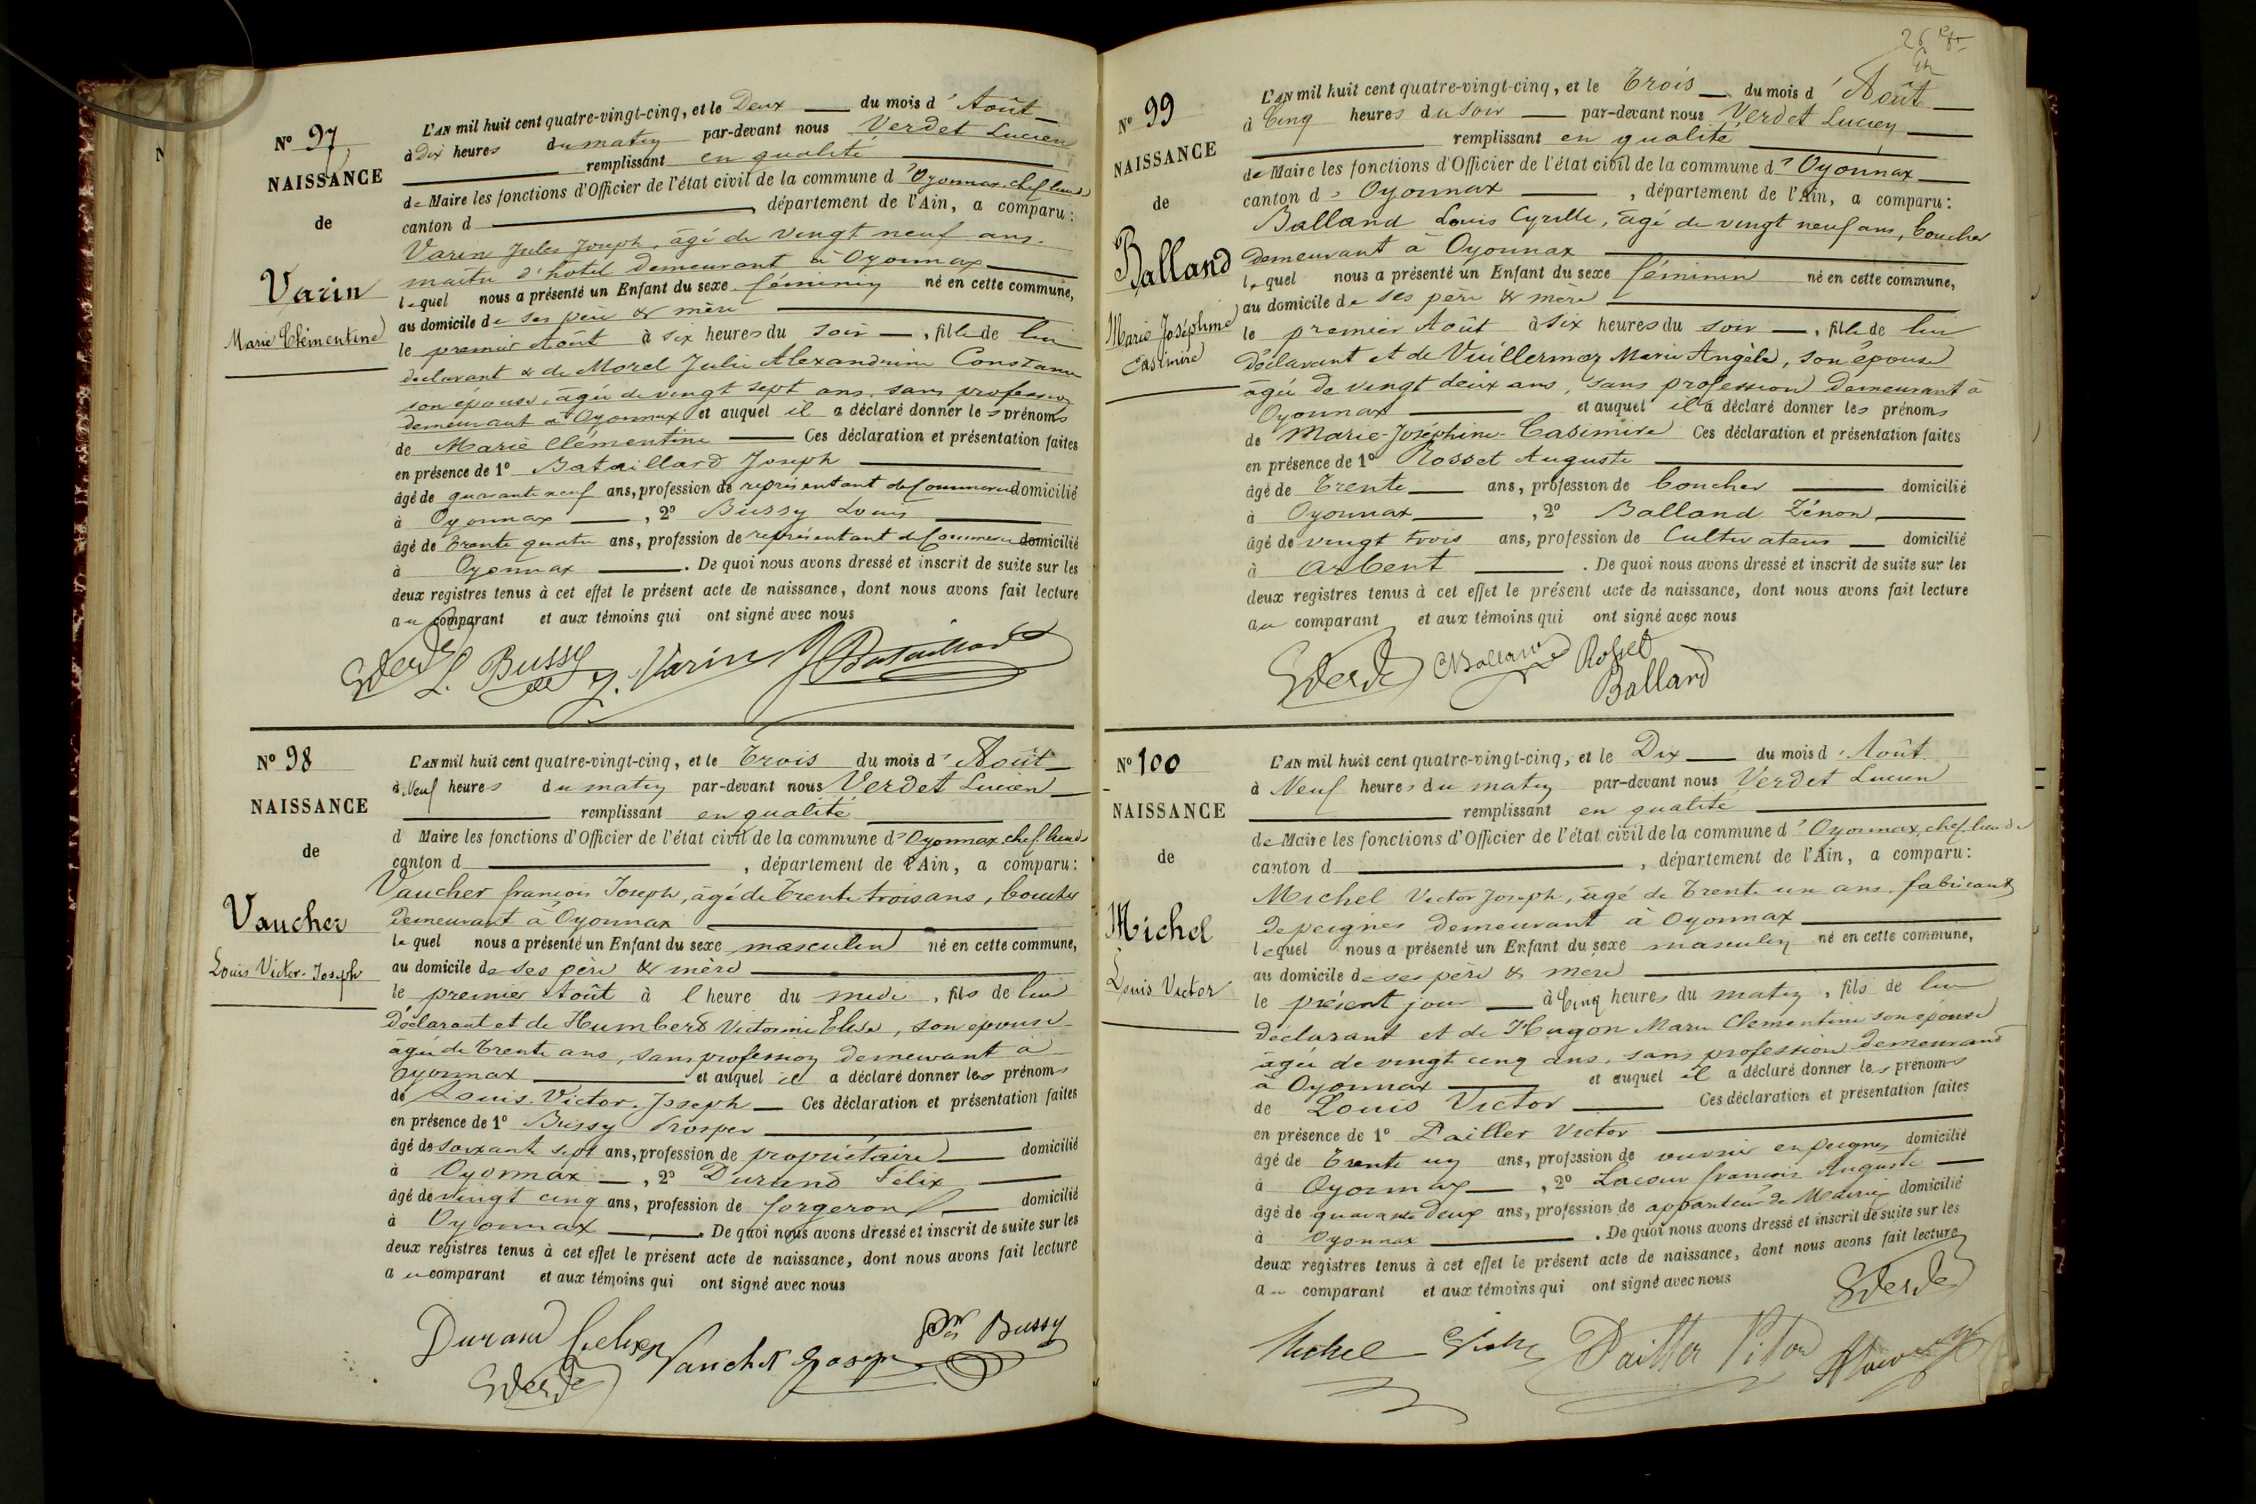 Nº 97
NAISSANCE
de
Varin
Marie Clémentine
L'AN mil huit cent quatre-vingt-cinq, et le Deux du mois d'Août
à Dix heures du matin par-devant nous Verdet Lucien
remplissant en qualité
de Maire les fonctions d'Officier de l'état civil de la commune d'Oyonnax, chef lieu de
canton d , département de l'Ain, a comparu:
Varin Jules Joseph, âgé de vingt neuf ans.
maître d'hôtel demeurant à Oyonnax
lequel nous a présenté un Enfant du sexe féminin né en cette commune,
au domicile de ses père & mère
le premier Août à six heures du soir , fille de lui
déclarant & de Morel Julie Alexandrine Constance
son épouse, âgée de vingt sept ans, sans profession
demeurant à Oyonnax et auquel il a déclaré donner les prénoms
de Marie Clémentine Ces déclaration et présentation faites
en présence de 1º Bataillard Joseph
âgé de quarante neuf ans, profession de représentant de Commerce domicilié
à Oyonnax , 2º Bussy Louis
âgé de trente quatre ans, profession de représentant de Commerce domicilié
à Oyonnax . De quoi nous avons dressé et inscrit de suite sur les
deux registres tenus à cet effet le présent acte de naissance, dont nous avons fait lecture
au comparant et aux témoins qui ont signé avec nous
LVerdet L. Bussy J. Varin J Bataillard
Nº 98
NAISSANCE
de
Vaucher
Louis Victor-Joseph
L'AN mil huit cent quatre-vingt-cinq, et le Trois du mois d'Août
à Neuf heures du matin par-devant nous Verdet Lucien
remplissant en qualité
d Maire les fonctions d'Officier de l'état civil de la commune d'Oyonnax, chef lieu de
canton d , département de l'Ain, a comparu:
Vaucher françois Joseph, âgé de trente trois ans, boucher
demeurant à Oyonnax
lequel nous a présenté un Enfant du sexe masculin né en cette commune,
au domicile de ses père & mère
le premier Août à l'heure du midi , fils de lui
déclarant et de Humbert Victorine Elisa, son épouse
âgée de trente ans, sans profession demeurant à
Oyonnax et auquel il a déclaré donner les prénoms
de Louis-Victor-Joseph Ces déclaration et présentation faites
en présence de 1º Bussy Prosper
âgé de soixante sept ans, profession de propriétaire domicilié
à Oyonnax , 2º Durand Félix
âgé de vingt cinq ans, profession de forgeron domicilié
à Oyonnax . De quoi nous avons dressé et inscrit de suite sur les
deux registres tenus à cet effet le présent acte de naissance, dont nous avons fait lecture
au comparant et aux témoins qui ont signé avec nous
Durand félix Vaucher Joseph Bussy
LVerdet
Nº 99
NAISSANCE
de
Balland
Marie Joséphine
Casimire
L'AN mil huit cent quatre-vingt-cinq, et le Trois du mois d'Août
à Cinq heures du soir par-devant nous Verdet Lucien
remplissant en qualité
de Maire les fonctions d'Officier de l'état civil de la commune d'Oyonnax
canton d'Oyonnax , département de l'Ain, a comparu:
Balland Louis Cyrille, âgé de vingt neuf ans, boucher
demeurant à Oyonnax
lequel nous a présenté un Enfant du sexe féminin né en cette commune,
au domicile de ses père & mère
le premier Août à six heures du soir , fille de lui
déclarant et de Vuillermoz Marie Angèle, son épouse
âgée de vingt deux ans, sans profession demeurant à
Oyonnax et auquel il a déclaré donner les prénoms
de Marie-Joséphine-Casimire Ces déclaration et présentation faites
en présence de 1º Rosset Auguste
âgé de trente ans, profession de boucher domicilié
à Oyonnax , 2º Balland Zénon
âgé de vingt trois ans, profession de Cultivateur domicilié
à Arbent . De quoi nous avons dressé et inscrit de suite sur les
deux registres tenus à cet effet le présent acte de naissance, dont nous avons fait lecture
au comparant et aux témoins qui ont signé avec nous
LVerdet Balland Rosset
Balland
Nº 100
NAISSANCE
de
Michel
Louis Victor
L'AN mil huit cent quatre-vingt-cinq, et le Dix du mois d'Août
à Neuf heures du matin par-devant nous Verdet Lucien
remplissant en qualité
de Maire les fonctions d'Officier de l'état civil de la commune d'Oyonnax, chef lieu de
canton d , département de l'Ain, a comparu:
Michel Victor Joseph, âgé de trente un ans, fabricant
de peignes demeurant à Oyonnax
lequel nous a présenté un Enfant du sexe masculin né en cette commune,
au domicile de ses père & mère
le présent jour à Cinq heures du matin , fils de lui
déclarant et de Hugon Marie Clémentine son épouse
âgée de vingt cinq ans, sans profession demeurant
à Oyonnax et auquel il a déclaré donner les prénoms
de Louis Victor Ces déclaration et présentation faites
en présence de 1º Pailler Victor
âgé de trente un ans, profession de ouvrier en peignes domicilié
à Oyonnax , 2º Lacour françois Auguste
âgé de quarante deux ans, profession de appariteur de Mairie domicilié
à Oyonnax . De quoi nous avons dressé et inscrit de suite sur les
deux registres tenus à cet effet le présent acte de naissance, dont nous avons fait lecture
au comparant et aux témoins qui ont signé avec nous
LVerdet
Michel Victor Pailler Victor